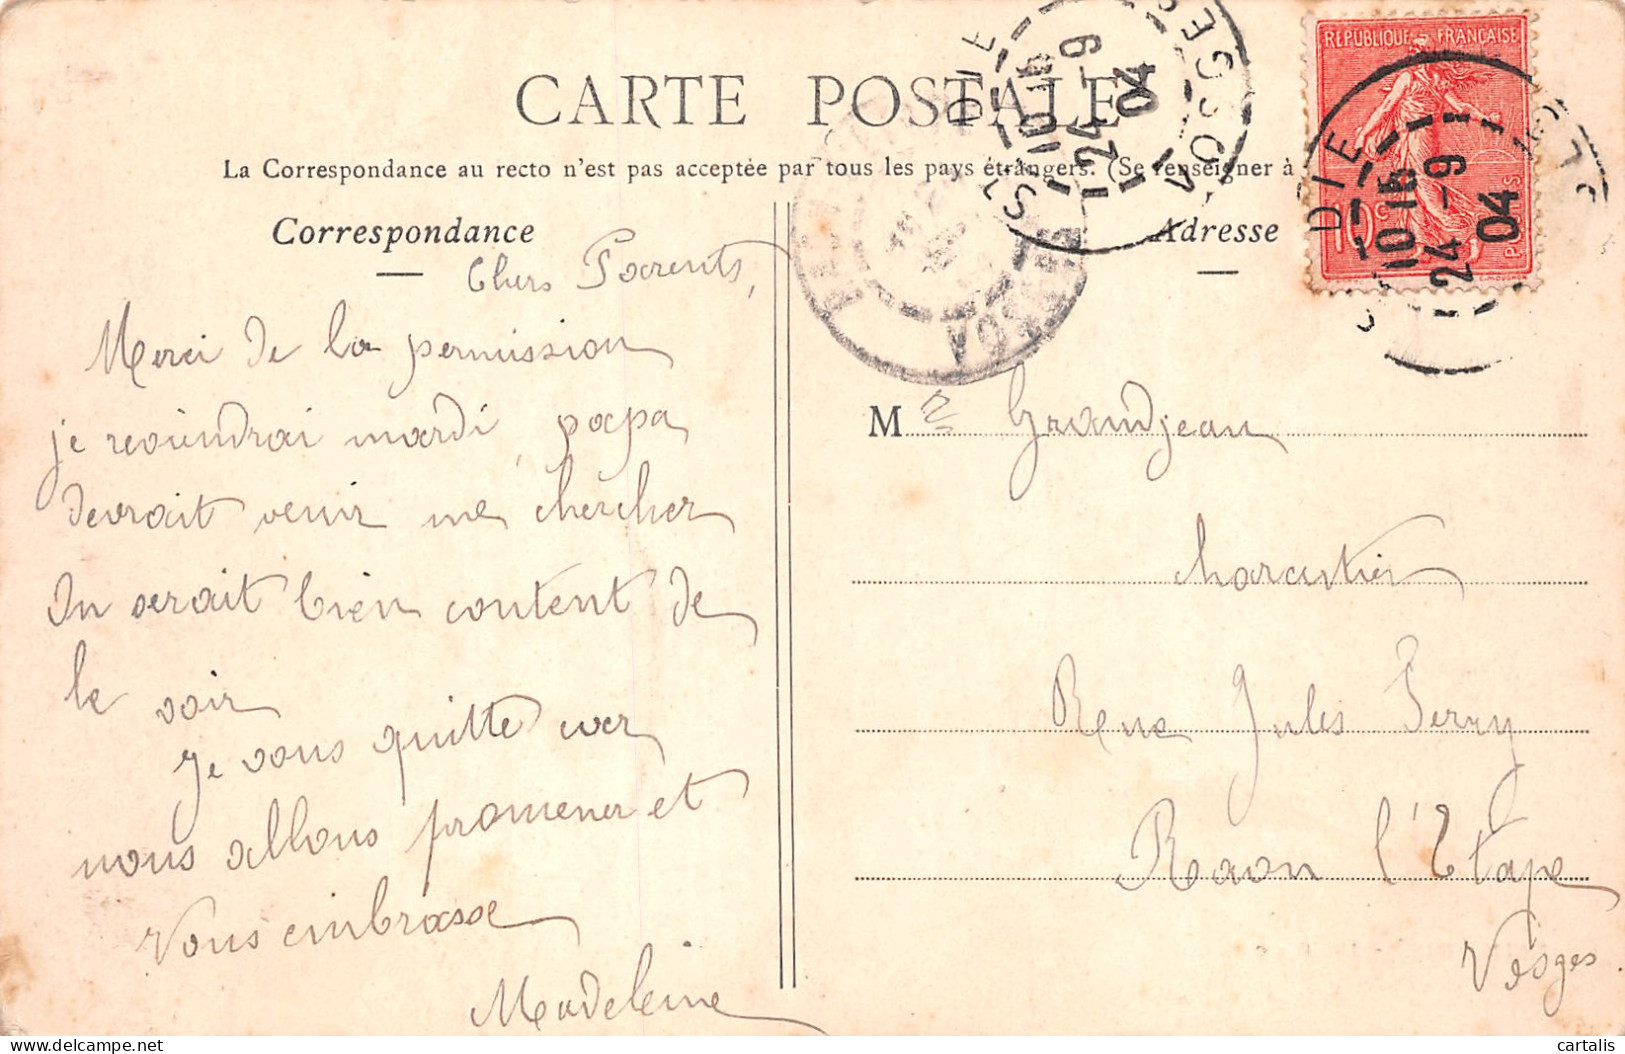 CARTE POSTALE
La Correspondance au recto n'est pas acceptée par tous les pays étrangers. (Se renseigner à
Correspondance
Chers Parents,
Merci de la permission
je reviendrai mardi, papa
devrait venir me chercher
On serait bien content de
le voir
Je vous quitte car
nous allons promener et
Vous embrasse
Madeleine
Adresse
REPUBLIQUE FRANÇAISE
10c
POSTES
ST DIE
VOSGES
10 15
24 -9
04
ST DIE
10 15
24 -9
04
VOSGES
Mr Grandjean
charcutier
Rue Jules Ferry
Raon l'Etape
Vosges
cartalis
delcampe.net